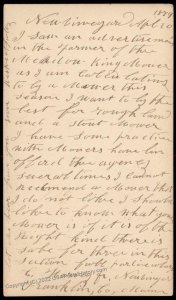 New Vineyard Apl 20
1889
I saw an advertisement
in the Farmer of the
Meadow King Mower
as I am calculating
to by a Mower this
season I want to by the
best for rough land
and a stout Mower
I have some practice
with Mowers have been
offerd the agency
several times I cannot
recommend a Mower that
I do not like I should
like to know what your
Mower is if it is of the
right kind there is
to be for three in this
section just particulars
New Vineyard
Franklin Co, Maine